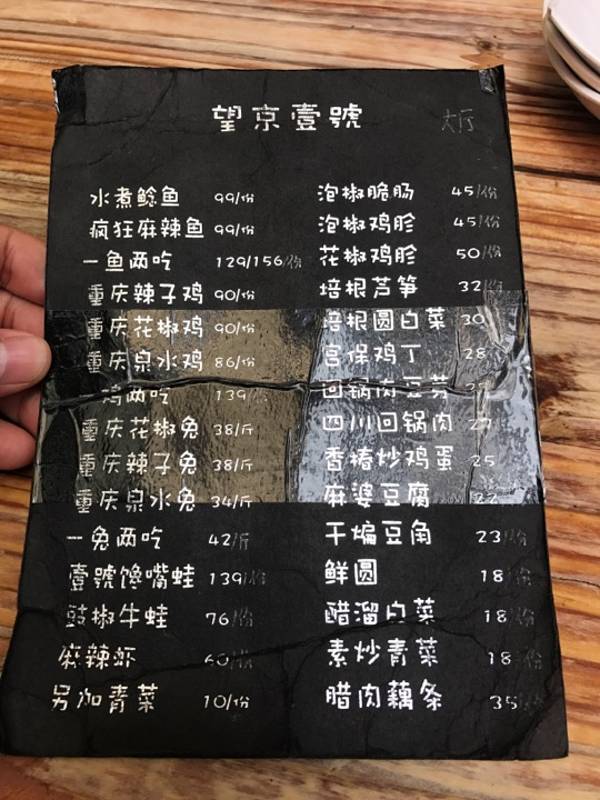 望京壹號
大厅
水煮鲶鱼 99/份
疯狂麻辣鱼 99/份
一鱼两吃 129/156/份
重庆辣子鸡 90/份
重庆花椒鸡 90/份
重庆泉水鸡 86/份
鸡两吃 139
重庆花椒兔 38/斤
重庆辣子兔 38/斤
重庆泉水兔 34/斤
一兔两吃 42/斤
壹號馋嘴蛙 139/份
豉椒牛蛙 76/份
麻辣虾 60/份
另加青菜 10/份
泡椒脆肠 45/份
泡椒鸡胗 45/份
花椒鸡胗 50/份
培根芦笋 32/份
培根圆白菜 30
宫保鸡丁 28
回锅肉豆芽
四川回锅肉 27
香椿炒鸡蛋 25
麻婆豆腐 22
干煸豆角 23/份
鲜圆 18/份
醋溜白菜 18/份
素炒青菜 18/份
腊肉藕条 35/份